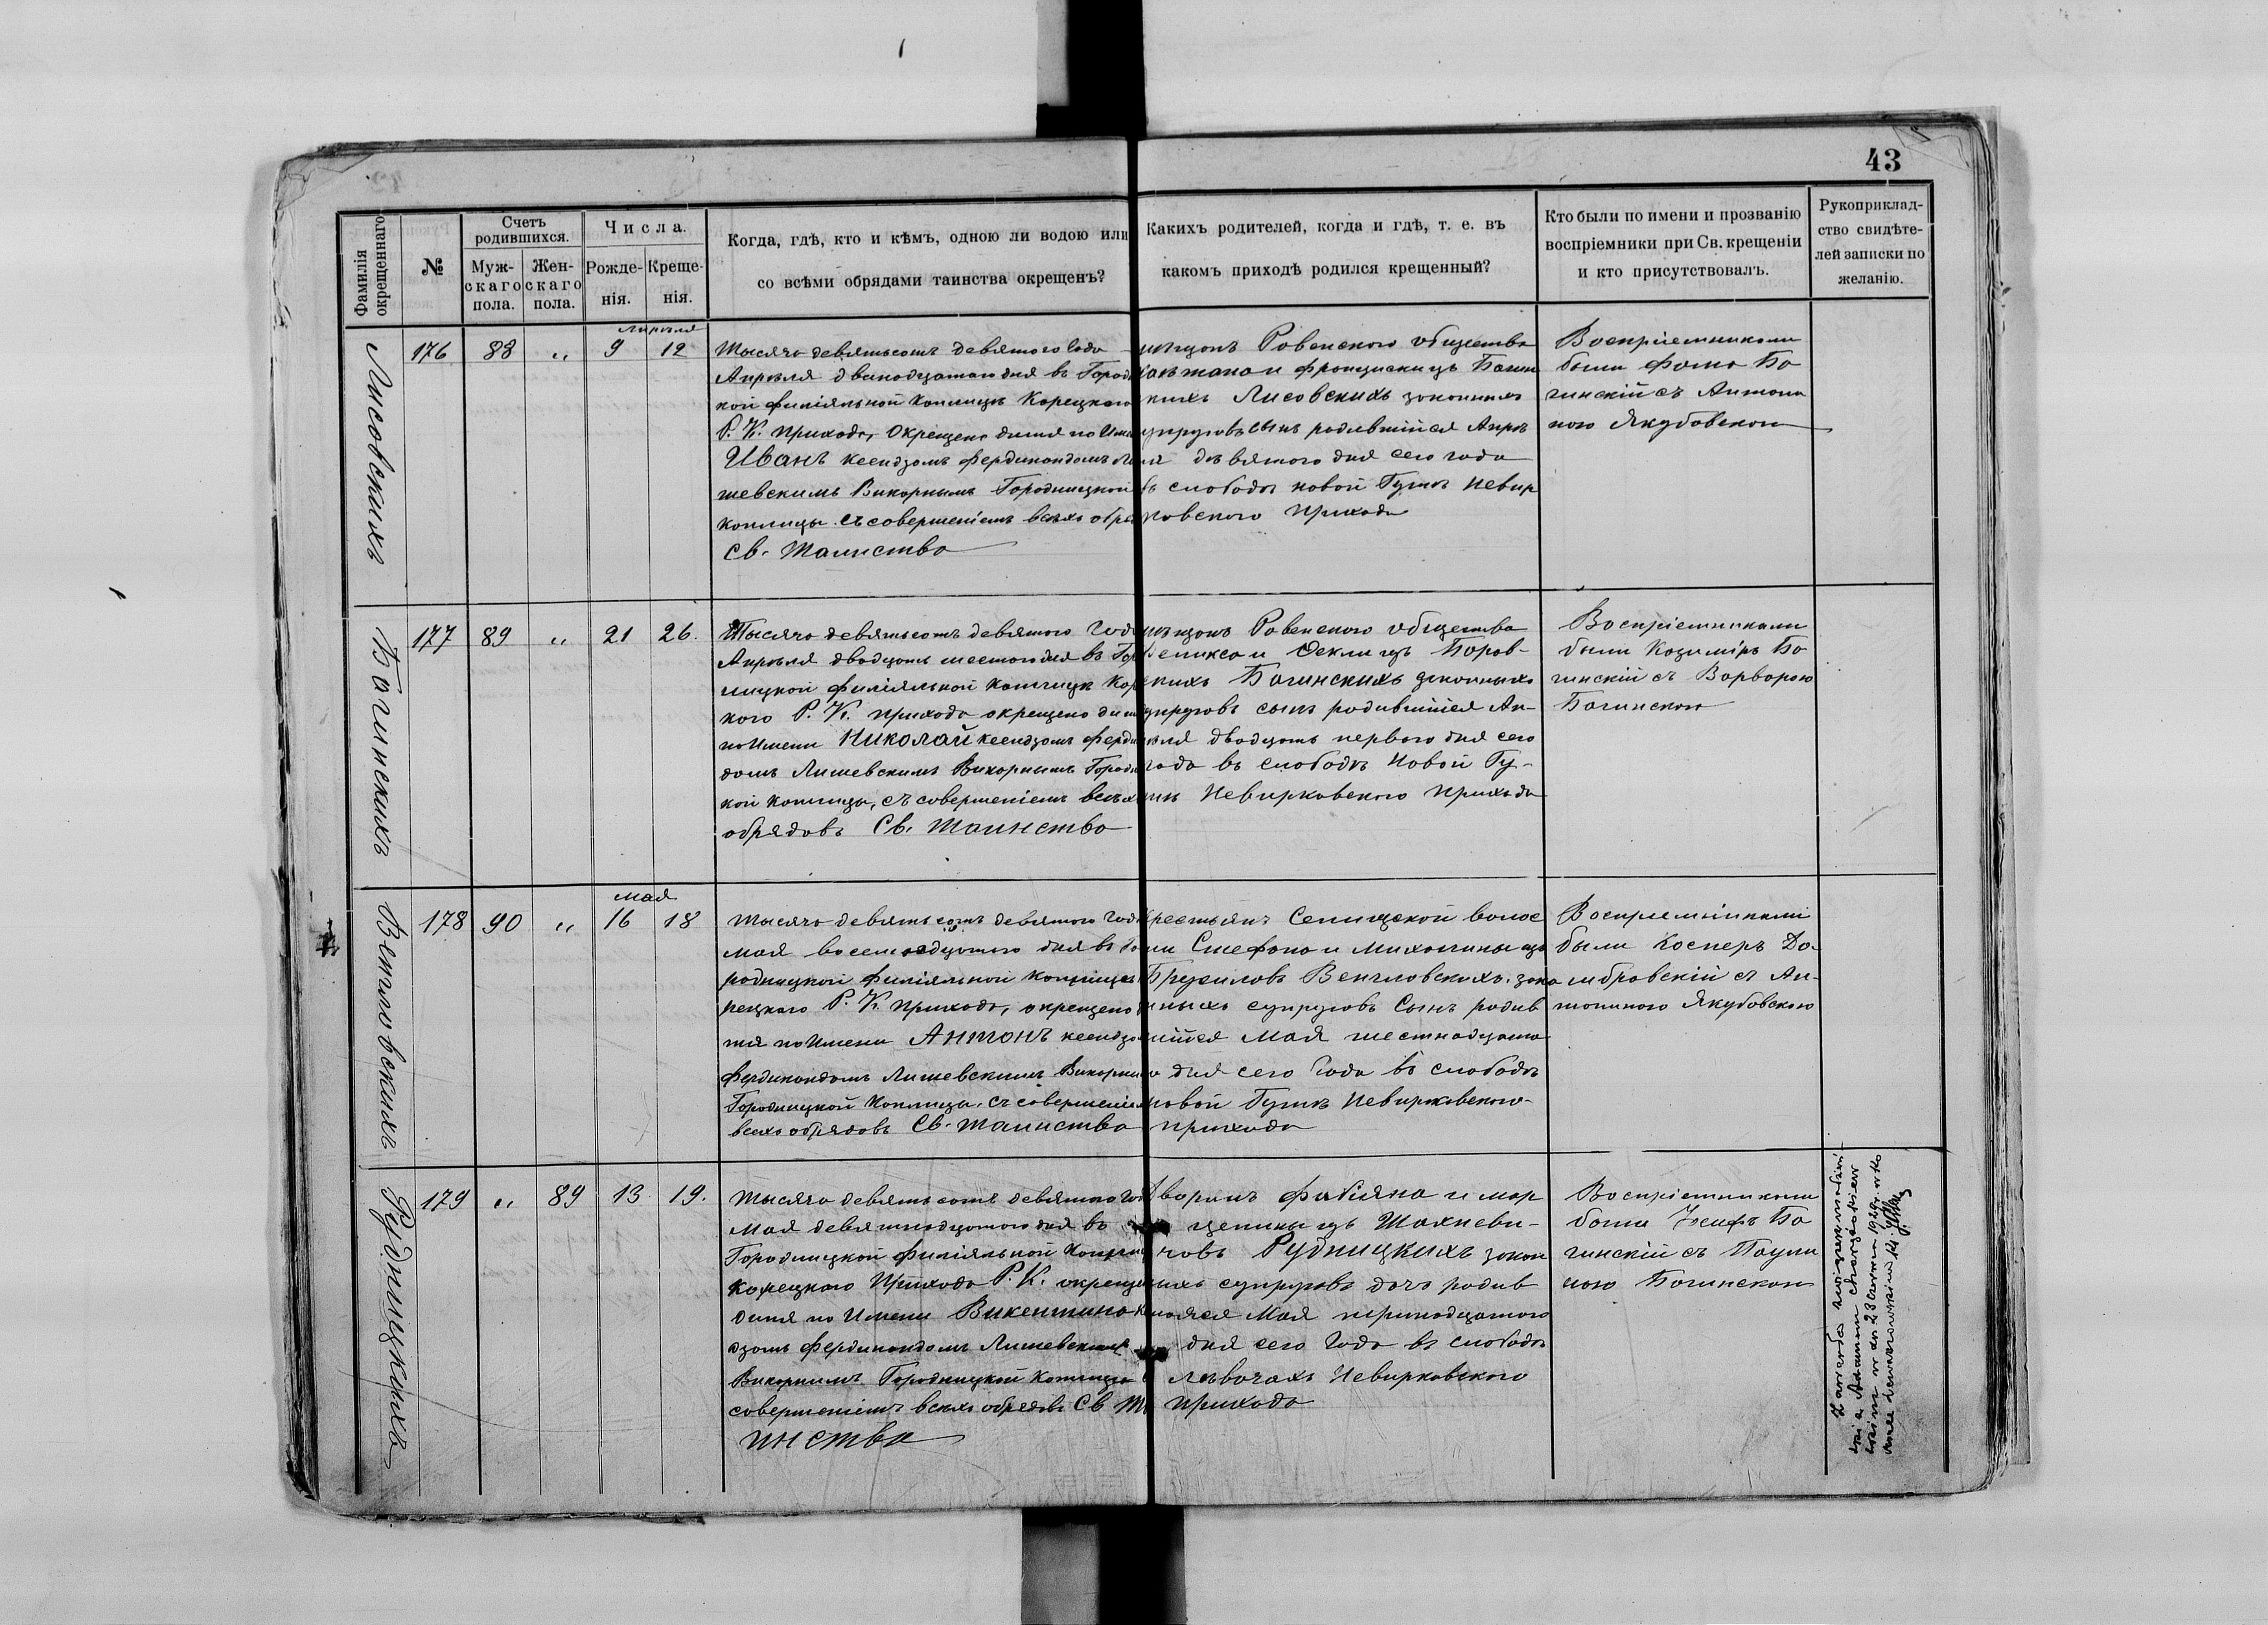 43
Фамилія окрещеннаго
№
Счетъ родившихся.
Муж-
скаго
пола.
Жен-
скаго
пола.
Числа.
Рожде-
нія.
Креще-
нія.
Когда, гдѣ, кто и кѣмъ, одною ли водою или
со всѣми обрядами таинства окрещенъ?
Каких​ъ родителей, когда и гдѣ, т. е. въ
какомъ приходѣ родился крещенный?
Кто были по имени и прозванію
воспріемники при Св. крещеніи
и кто присутствовалъ.
Рукоприклад-
ство свидѣте-
лей записки по
желанію.
Лисовскихъ
176
88
"
Апрѣля
9
12
Тысяча девятьсотъ девятого года
Апрѣля двинадцатаго дня въ Город
кой филіяльной каплицѣ Корецкого
Р. К. прихода, окрещено дитя по Име
Иванъ ксендзомъ Фердинандомъ Ли
шевскимъ Викарнымъ Городницкой
каплицы съ совершеніемъ всѣхъ обря
Св. Таинства
мѣщанъ Ровенского общества
Каѣтана и Францишки изъ Багин
кихъ Лисовскихъ законных
упруговъ сынъ родившійся Апрѣ
ля девятого дня сего года
въ слободѣ новой Гутѣ Невир
ковского прихода
Воспріемниками
были Фома Ба
гинскій съ Антони
ною Якубовскою
Багинскихъ
177
89
"
21
26.
Тысяча девятьсотъ девятого год
Апрѣля двадцать шестого дня въ Гор
ницкой филіяльной каплицѣ Кор
кого Р. К. прихода окрещено дит
по Имени Николай ксендзомъ Ферди
домъ Лишевскимъ Викарнымъ Городн
кой каплицы, съ совершеніемъ всѣхъ
обрядовъ Св. Таинства
мѣщанъ Ровенского общества
Феликса и Феклы изъ Боров-
кихъ Багинскихъ законныхъ
упруговъ сынъ родившійся Ап-
рѣля двадцать первого дня сего
года въ слободѣ Новой Гу-
тѣ Невирковского прихода
Воспріемниками
были Казимірь Ба
гинскій съ Варварою
Багинскою
Венгловскихъ
178
90
"
Мая
16
18
Тысяча девятьсотъ девятого год
Мая восемнадцатого дня въ Го
родницкой филіяльной каплицѣ
рецкого Р. К. прихода, окрещено
тя по Имени Антонъ ксендзо
Фердинандомъ Лишевскимъ Викарны
Городницкой каплицы, съ совершеніе
всехъ обрядовъ Св. Таинства
Крестьянъ Селищской волос
ти Стефана и Михалины изъ
Брусиловъ Венгловскихъ зако
нныхъ супруговъ Сынъ родив
шійся Мая шестнадцато
го дня сего года въ слободѣ
новой Гутѣ Невирковского
прихода
Воспріемниками
были Касперъ До-
мбровскій съ Ан-
тониною Якубовскою
Рудницкихъ
179
"
89
13
19.
Тысяча девятьсотъ девятого го
Мая девятнадцатого дня въ
Городницкой филіяльной каплиц
Корецкого Прихода Р. К. окреще
дитя по Имени Викентина к
дзомъ Фердинандомъ Лишевским
Викарнымъ Городницкой каплицы
совершеніемъ всехъ обрядовъ Св. Та
инства
Дворянъ Фабіяна и Мар
целины изъ Шахневи-
човъ Рудницкихъ закон
ныхъ супруговъ дочь родив
шаяся Мая тринадцатого
дня сего года въ слободѣ
Невирковского
прихода
Воспріемниками
были Іосифъ Ба
гинскій съ Паули
ною Багинскою
Zawarła
1929